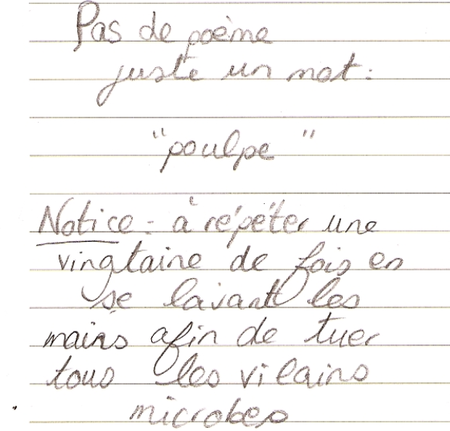 Pas de poème
juste un mot :
"poulpe"
Notice : à répéter une
vingtaine de fois en
se lavant les
mains afin de tuer
tous les vilains
microbes